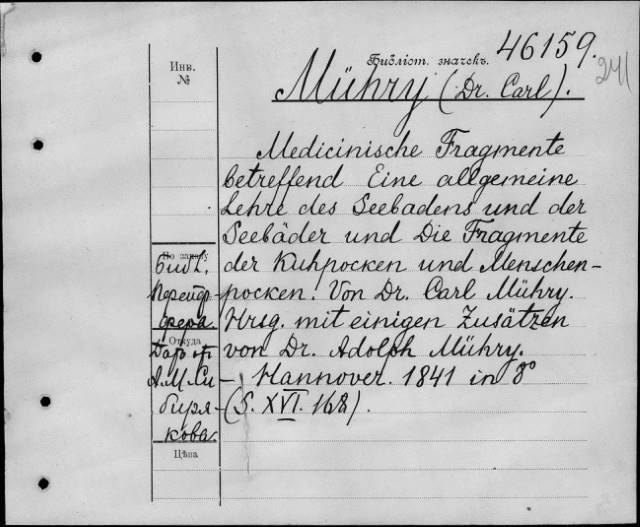 46159.
241
Библіот. значекъ.
Инв.
№
Mühry (Dr. Carl).
Medicinische Fragmente
betreffend Eine allgemeine
Lehre des Seebadens und der
Seebäder und Die Fragmente
der Kuhpocken und Menschen-
pocken. Von Dr. Carl Mühry.
Hrsg. mit einigen Zusätzen
von Dr. Adolph Mühry.
- Hannover. 1841 in 8°
(S. XVI. 168).
По заказу
Библ.
Перейд-
фера.
Откуда
Даръ
А. М. Си-
биря-
кова.
Цѣна